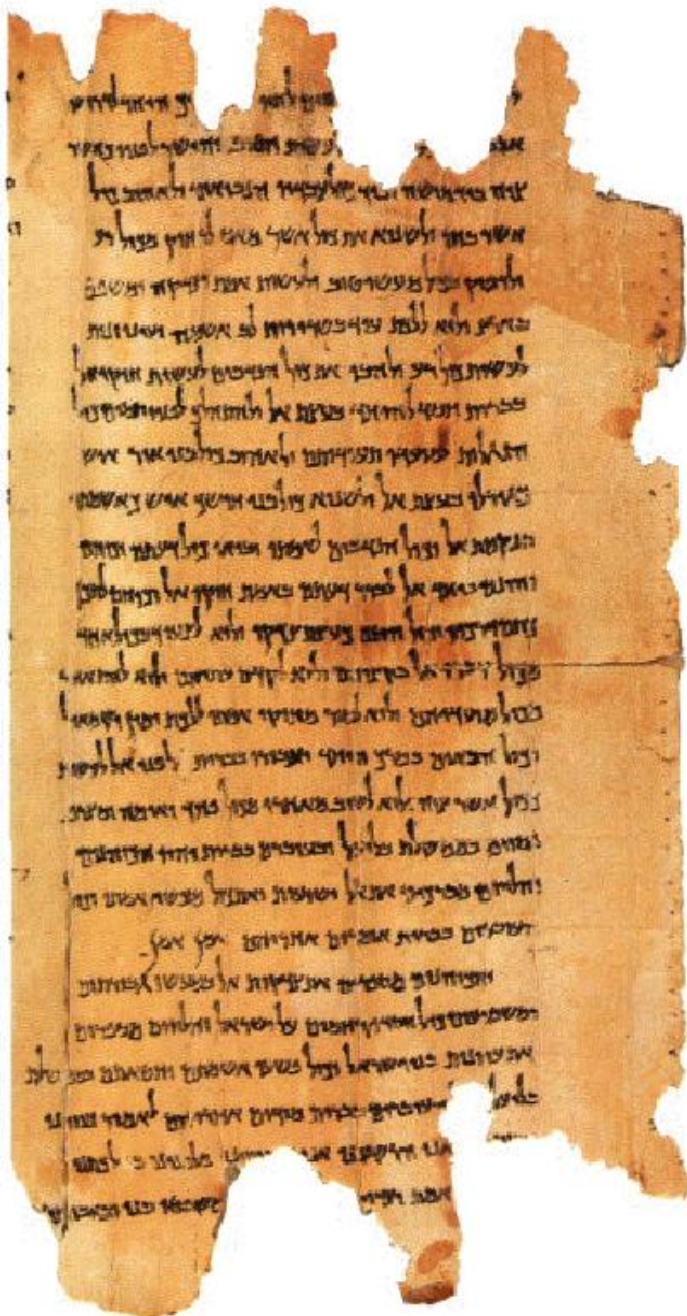 לחיו היחד לדרוש
לעשות הטוב והישר לפניו כאשר
צוה ביד מושה וביד כול עבדיו הנביאים ולאהוב כול
אשר בחר ולשנוא את כול אשר מאס לרחוק מכול רע
ולדבוק בכול מעשי טוב ולעשות אמת וצדקה ומשפט
בארץ ולוא ללכת עוד בשרירות לב אשמה ועיני זנות
לעשות כול רע ולהבי את כול הנדבים לעשות חוקי אל
בברית חסד להוחד בעצת אל ולהתהלך לפניו תמים כול
הנגלות למועדי תעודותם ולאהוב כול בני אור איש
כגורלו בעצת אל ולשנוא כול בני חושך איש כאשמתו
בנקמת אל וכול הנדבים לאמתו יביאו כול דעתם וכוחם
והונם ביחד אל לברר דעתם באמת חוקי אל וכוחם לתכן
כתם דרכיו וכול הונם כעצת צדקו ולוא לצעוד בכול אחד
מכול דברי אל בקציהם ולוא לקדם עתיהם ולוא להתאחר
מכול מועדיהם ולוא לסור מחוקי אמתו ללכת ימין ושמאול
וכול הבאים בסרך היחד יעבורו בברית לפני אל לעשות
ככול אשר צוה ולוא לשוב מאחרו מכול פחד ואימה ומצרף
נסוים בממשלת בליעל ובעוברם בברית יהיו הכוהנים
והלויים מברכים את אל ישועות ואת כול מעשי אמתו וכול
העוברים בברית אומרים אחריהם אמן אמן
והכוהנים מספרים את צדקות אל במעשי גבורתום
ומשמיעים כול חסדי רחמים על ישראל והלויים מספרים
את עוונות בני ישראל וכול פשעי אשמתם וחטאתם בממשלת
העוברים בברית מודים אחריהם לאמר נעוינו
הרשענו אנו מלפנינו בלכתנו
אמת משפטו בנו